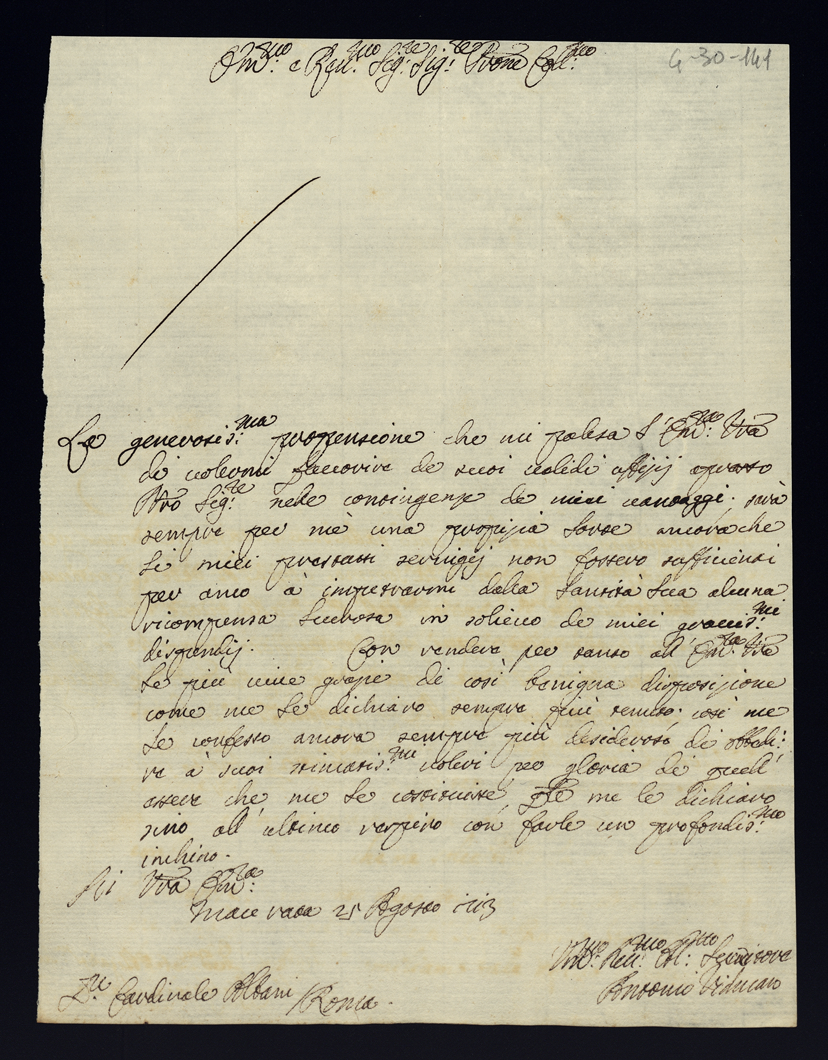 Em.mo e Reu.mo Sig.re Sig.re Prone Coll.mo
G-30-141
La generosis.ma propensione che mi palesa l'Em.za Vra
di uolermi fauorire de suoi ualidi uffizij apresso
Nro Sig.re nelle contingenze de miei uantaggi. sarà
sempre per me una propizia sorte ancorache
li miei prestati seruigij non fossero sufficienti
per anco à impetrarmi dalla Santità Sua alcuna
ricompensa in solieuo de miei grauis.mi
dispendij. Con rendere per tanto all'Em.za Vra
le più uiue grazie di così benigna disposizione
come me le dichiaro sempre più tenuto. così me
le confesso ancora sempre più desideroso di obbedi:
re à suoi stimatis.mi uoleri per gloria di quell'
essere che me le costituisce, e me le dichiaro
sino all'ultimo respiro con farle un profondis.mo
inchino.
Di Vra Em.za
Macerata 25 Agosto 1713
Um.mo Reu.mo Obl.mo Seruitore
Antonio
Cardinale Albani Roma.